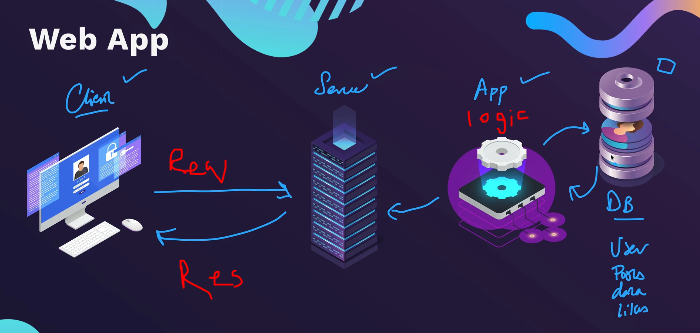 Web App
Client
Server
App
logic
Req
Res
DB
User
Posts
data
likes